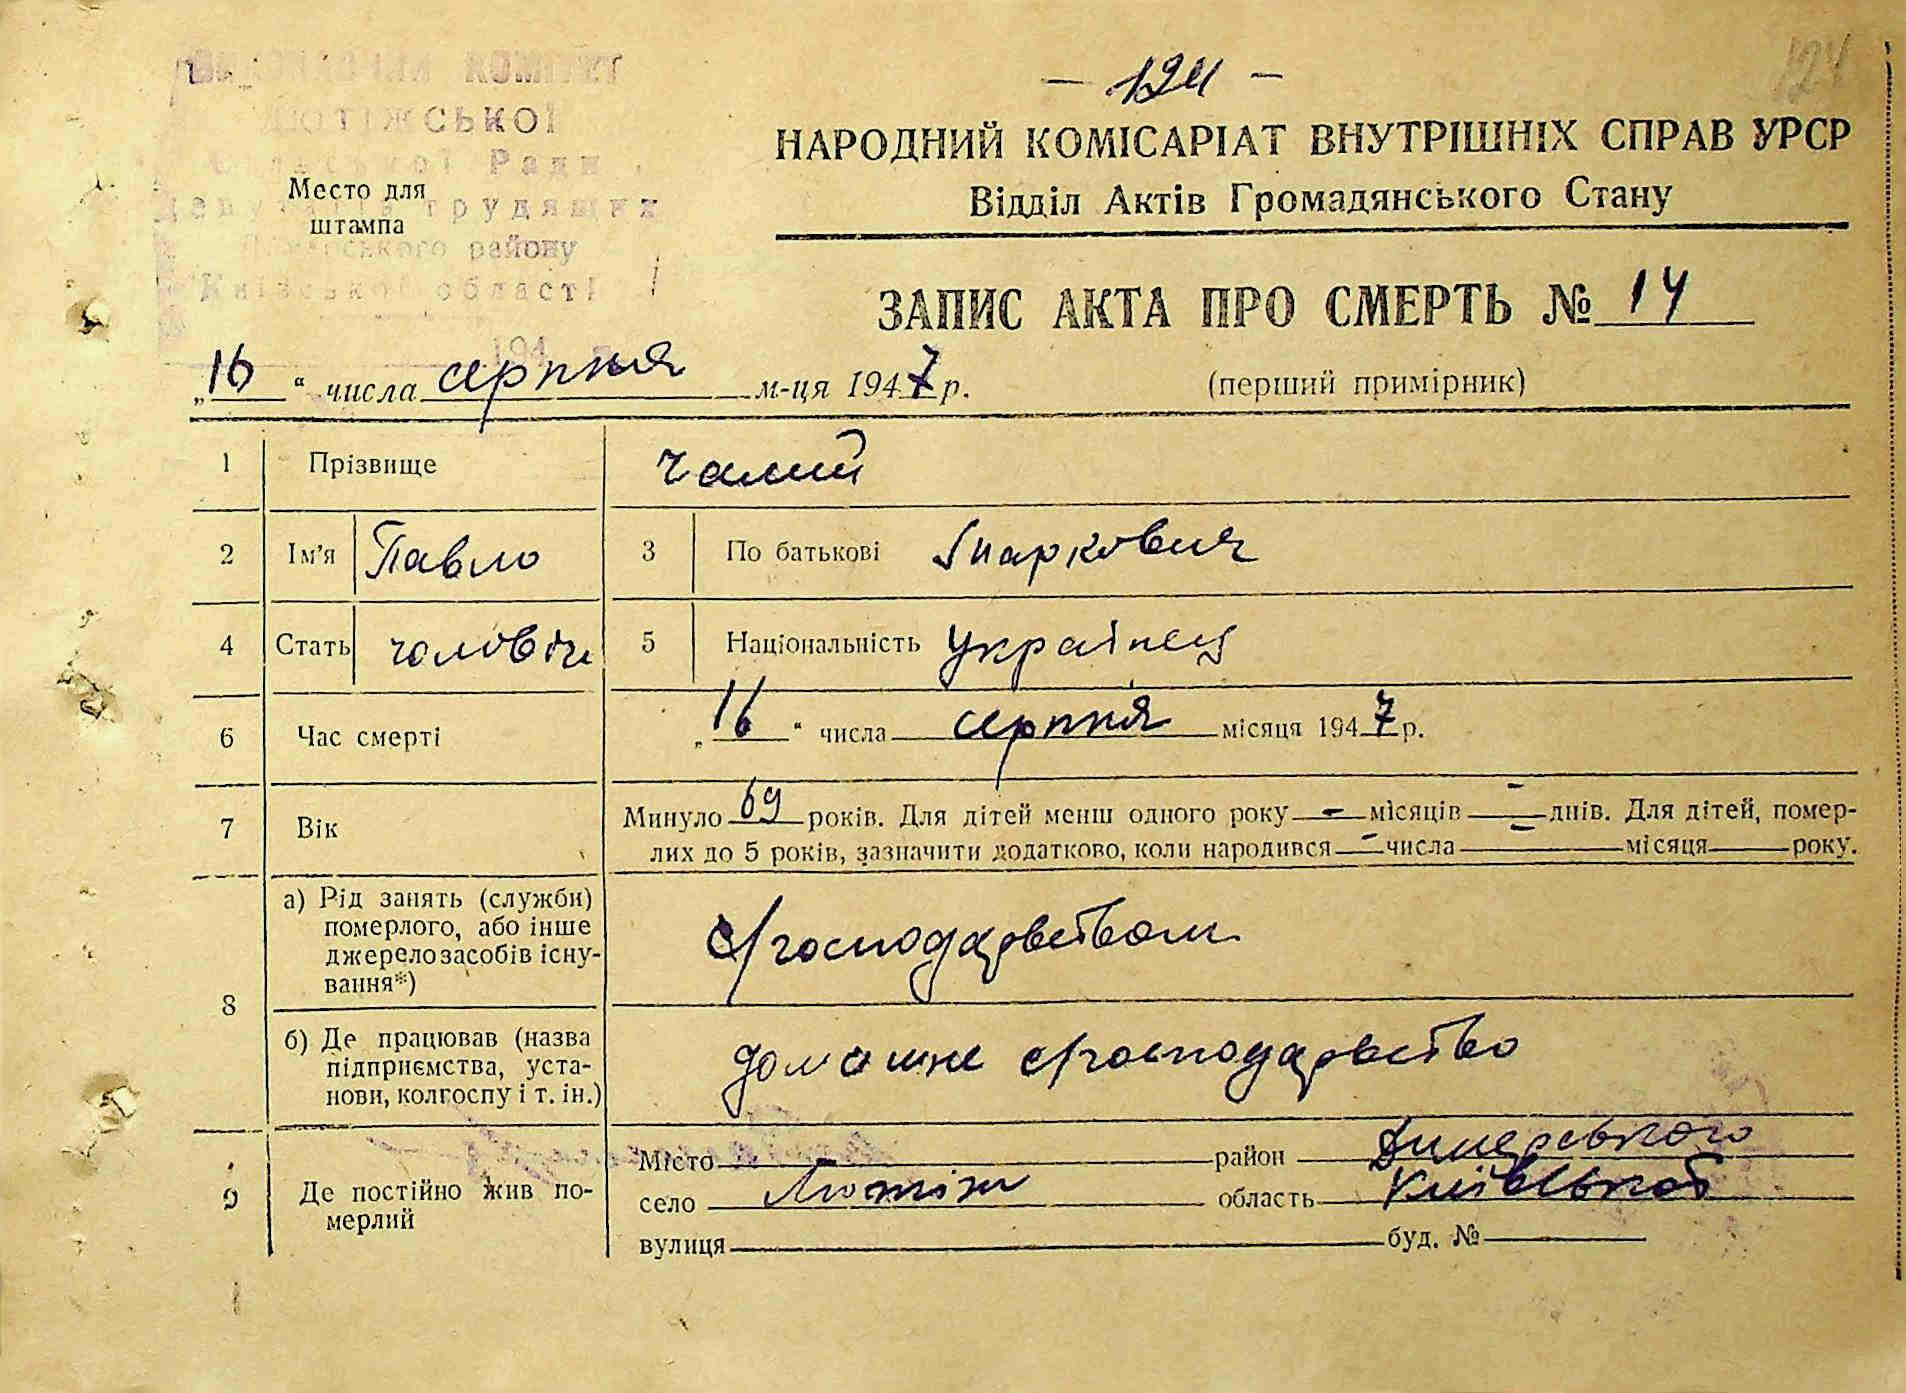 - 124 -
124
ВИКОНАВЧИЙ КОМІТЕТ
ЛЮТІЖСЬКОЇ
Сільської Ради
депутатів трудящих
Димерського району
Київської області
Место для
штампа
194
НАРОДНИЙ КОМІСАРІАТ ВНУТРІШНІХ СПРАВ УРСР
Відділ Актів Громадянського Стану
ЗАПИС АКТА ПРО СМЕРТЬ № 14
„16“ числа серпня м-ця 1947 р.
(перший примірник)
1 Прізвище Чалий
2 Ім'я Павло 3 По батькові Маркович
4 Стать чоловіч 5 Національність українец
6 Час смерті „16“ числа серпня місяця 1947 р.
7 Вік Минуло 69 років. Для дітей менш одного року - місяців - днів. Для дітей, помер-
лих до 5 років, зазначити додатково, коли народився - числа - місяця року.
8 а) Рід занять (служби)
померлого, або інше
джерело засобів існу-
вання*)
с/господарством
б) Де працював (назва
підприємства, уста-
нови, колгоспу і т. ін.)
домашнє с/господарство
9 Де постійно жив по-
мерлий
Місто район Димерського
село Лютіж область Київської
вулиця буд. №